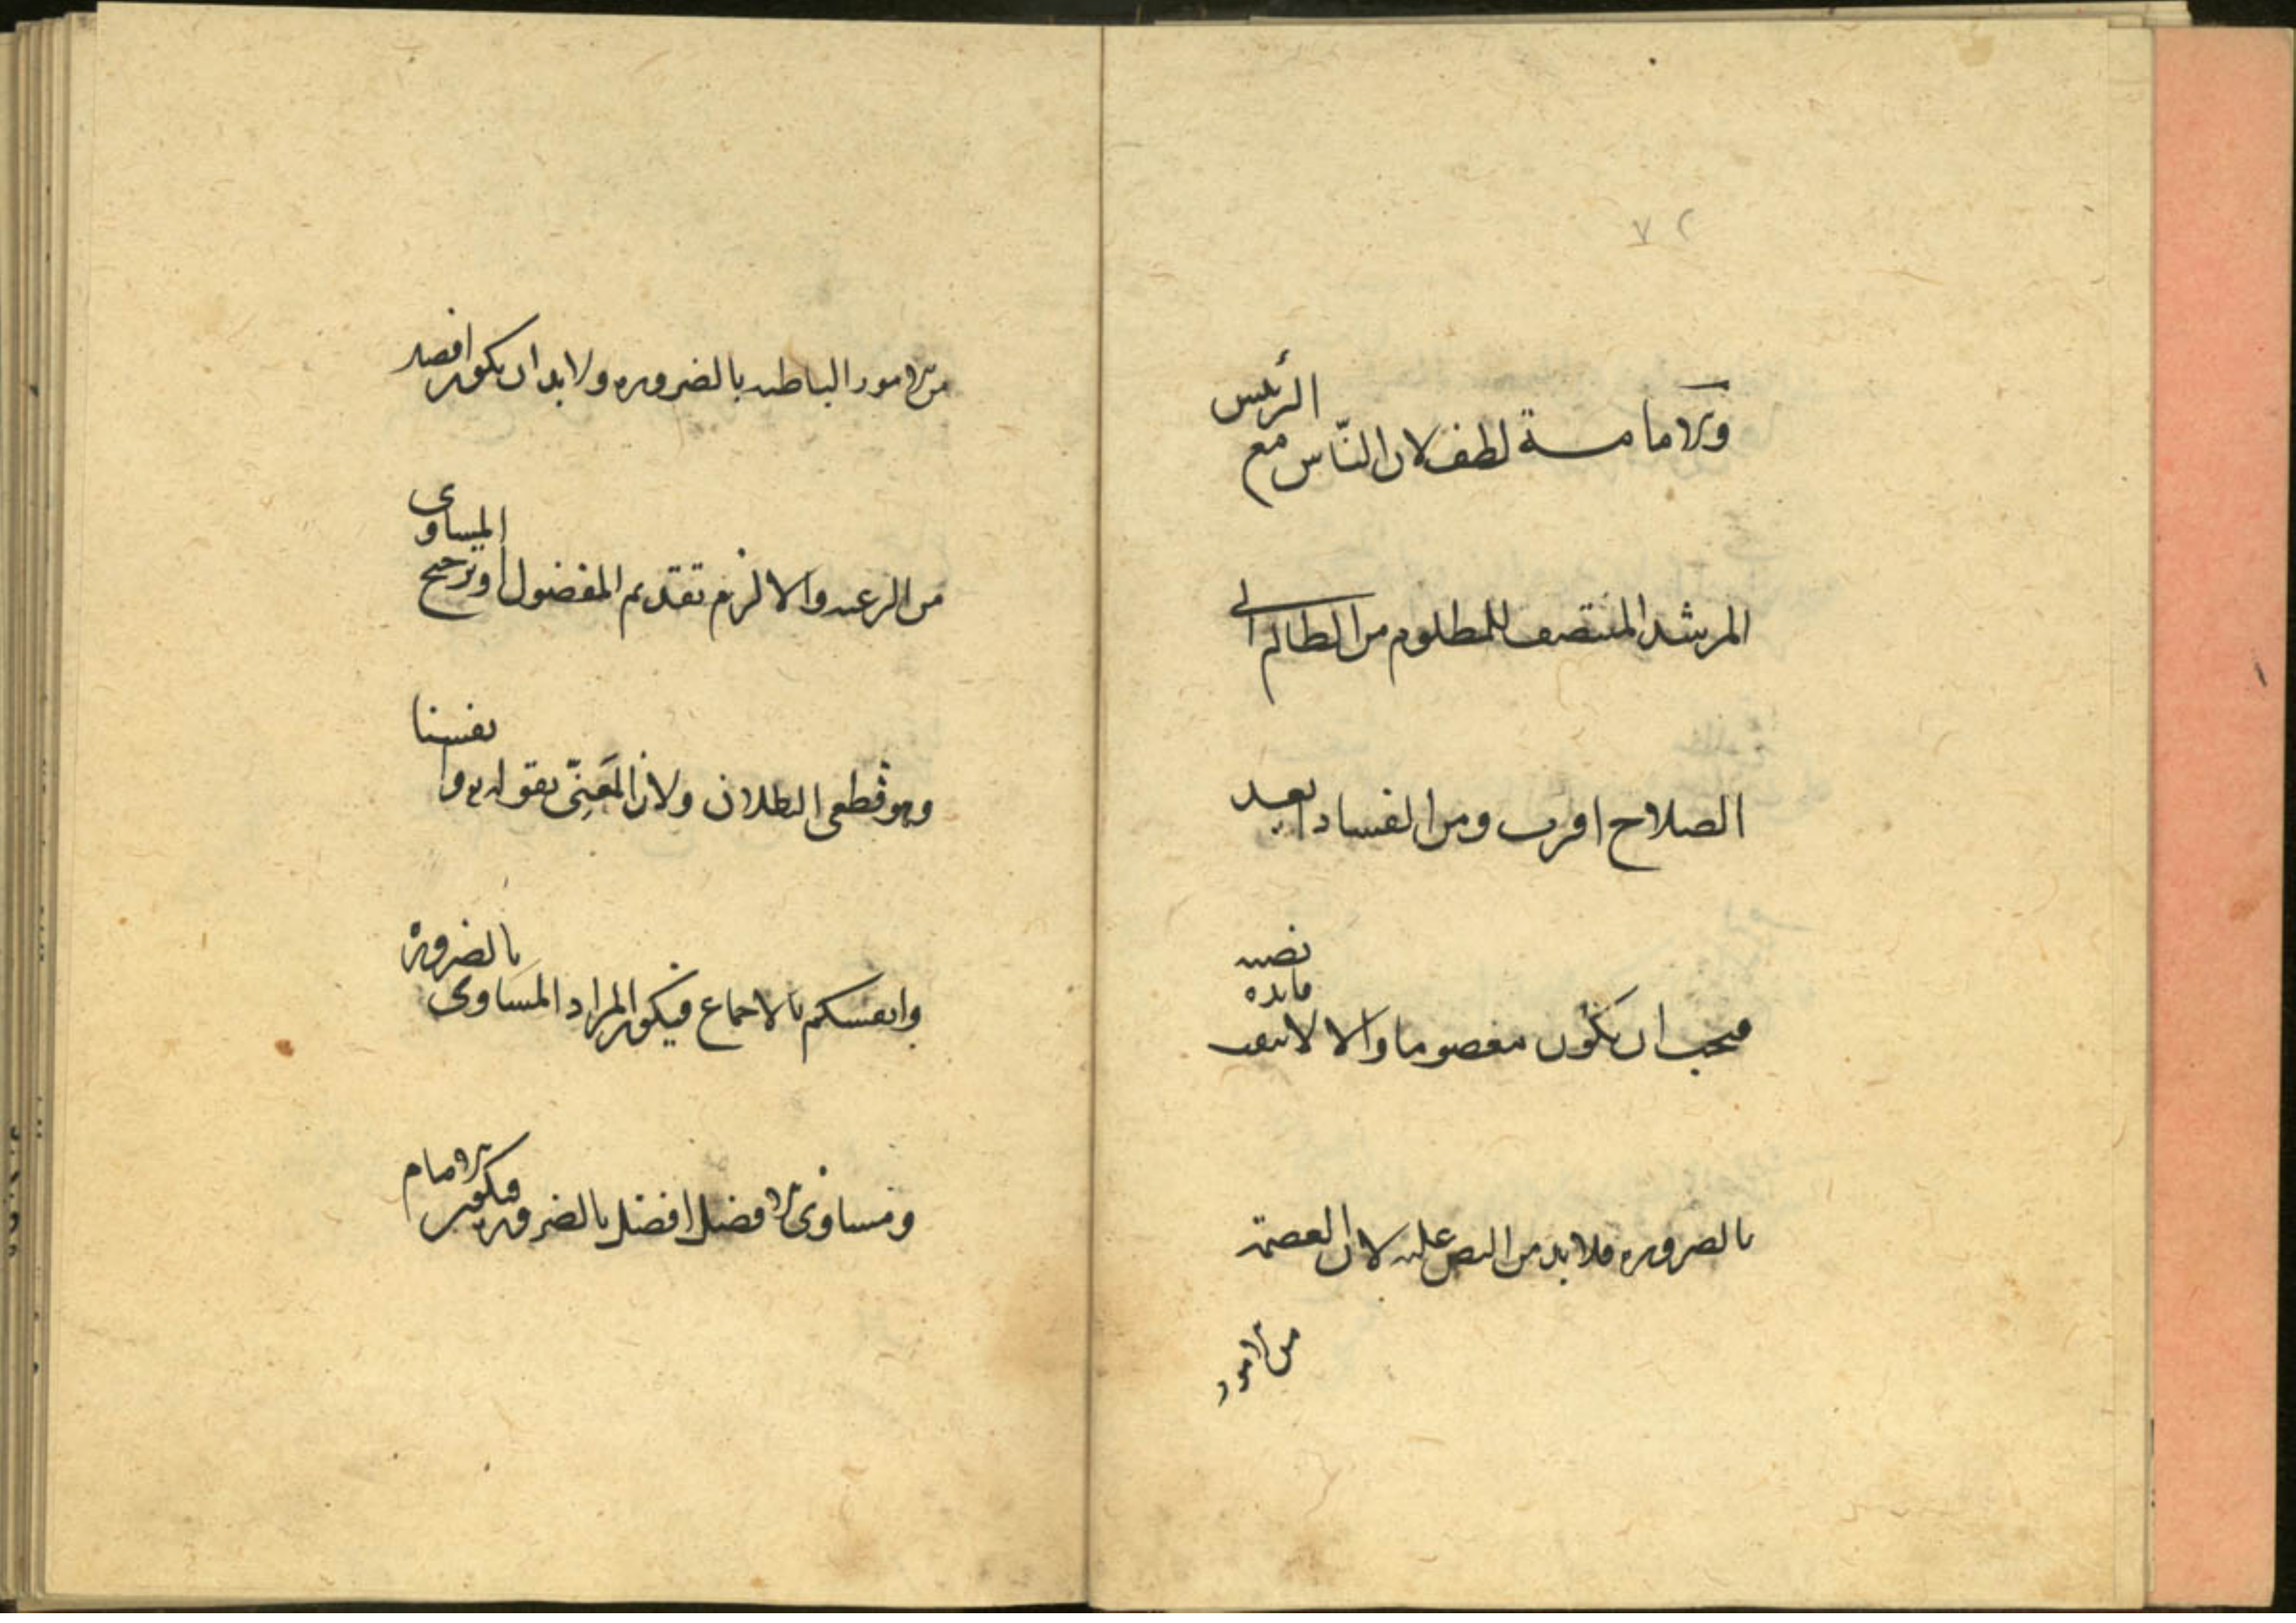 ٧٢
والامامة لطف لان الناس مع الرئيس
المرشد المنتصف للمظلوم من الظالم الى
الصلاح اقرب ومن الفساد ابعد
فيجب ان يكون معصوما والا لانتفت فايدة نصبه
بالضروره فلا بد من النص عليه لان العصمة
من الامور
من الامور الباطنه بالضروره ولا بد ان يكون افضل
من الرعيه والا لزم تقديم المفضول او ترجيح المساوى
وهو قطعى البطلان ولان المَعنِىّ بقوله وانفسنا
وانفسكم بالاجماع فيكون المراد المساوى بالضرورة
ومساوى الافضل افضل بالضروره فيكون الامام